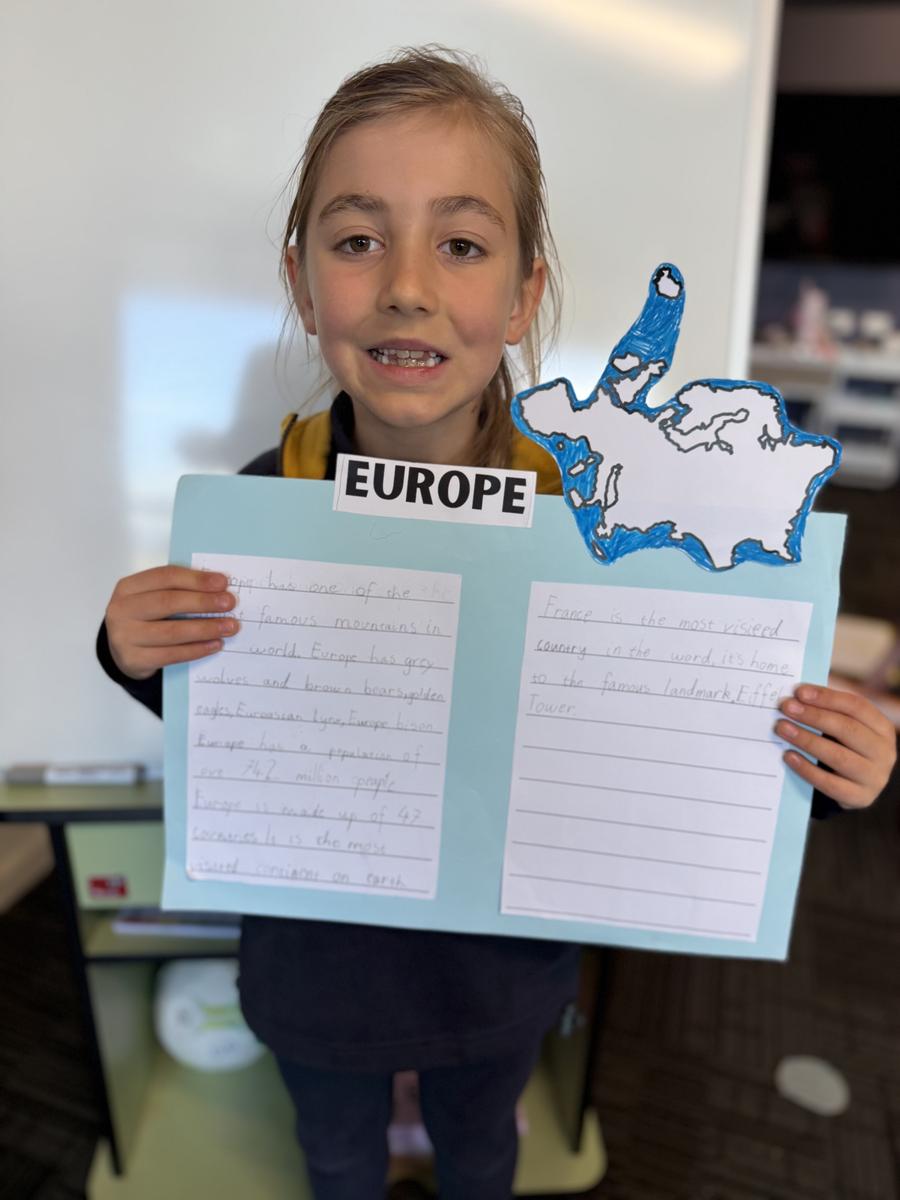 EUROPE
has one of the
famous mountains in
world. Europe has grey
wolves and brown bears,golden
eagles,Euroassan lynx,Europe bison
Europe has a population of
ove 742 million people
Europe is made up of 47
countries It is the most
visited continent on earth
France is the most visieed
country in the word, it's home
to the famous landmark,Eiffel
Tower.